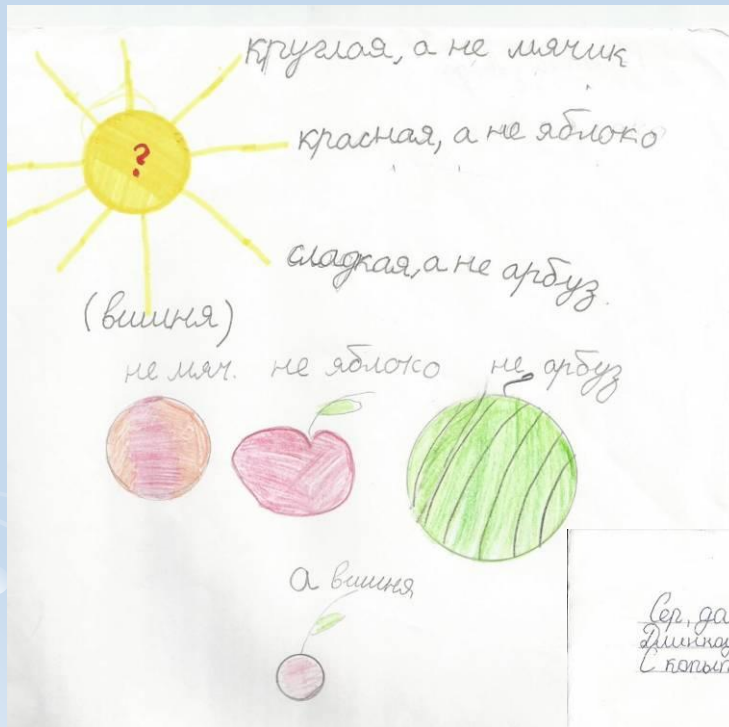 круглая, а не мячик
?
красная, а не яблоко
сладкая, а не арбуз.
(вишня)
не мяч. не яблоко не арбуз
а вишня
Сер, да
С